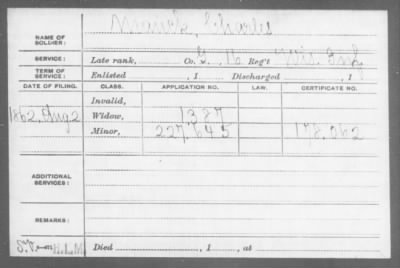 NAME OF SOLDIER: Charles
SERVICE: Late rank, Co. G. 16 Reg't Wis. Inf.
TERM OF SERVICE: Enlisted , 1 Discharged , 1
DATE OF FILING. CLASS. APPLICATION NO. LAW. CERTIFICATE NO.
Invalid,
1862, Aug 2 Widow, 1327
Minor, 227.645 178.062
ADDITIONAL SERVICES:
REMARKS:
Died , 1 , at